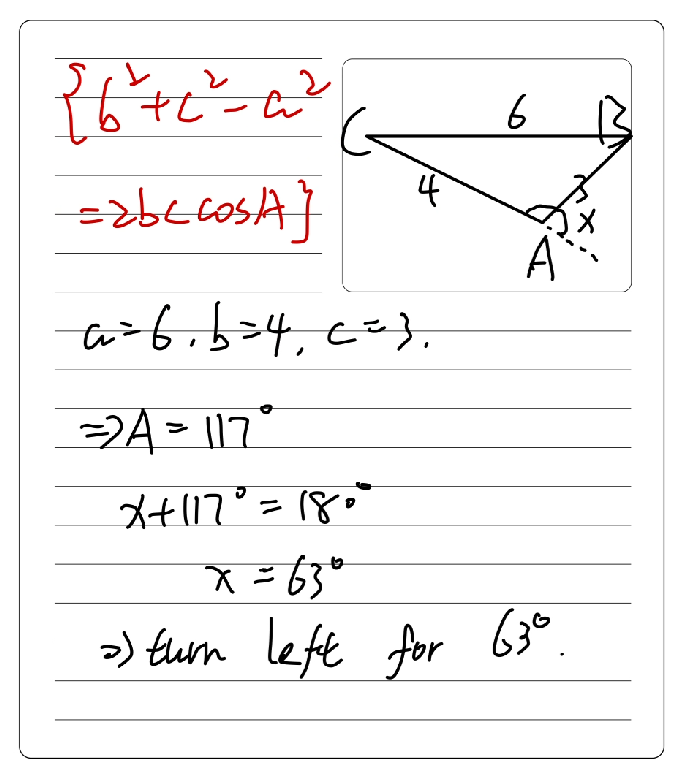 {b²+c²-a²
=2bc cosA}
C 6 B
4 3 x
A
a=6, b=4, c=3.
⇒A=117°
x+117°=180°
x=63°
⇒ turn left for 63°.